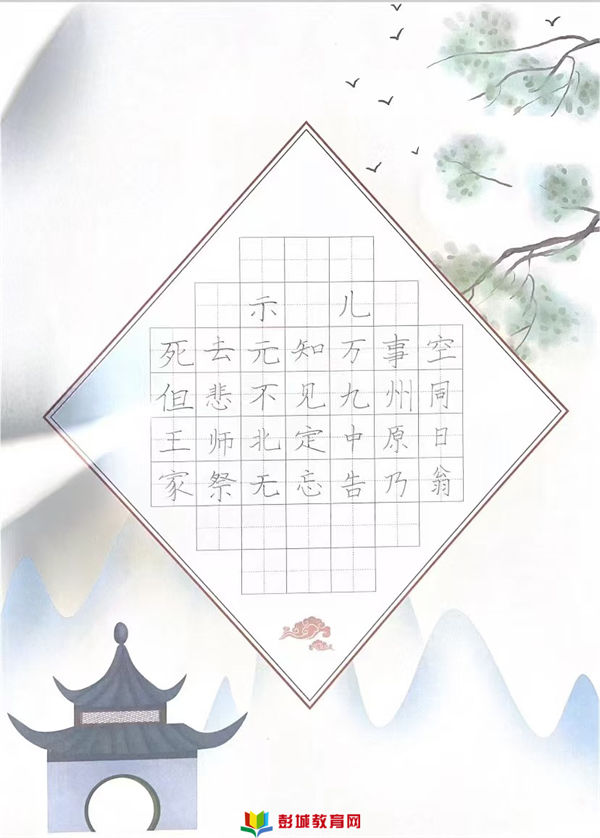 示儿
死去元知万事空
但悲不见九州同
王师北定中原日
家祭无忘告乃翁
彭城教育网